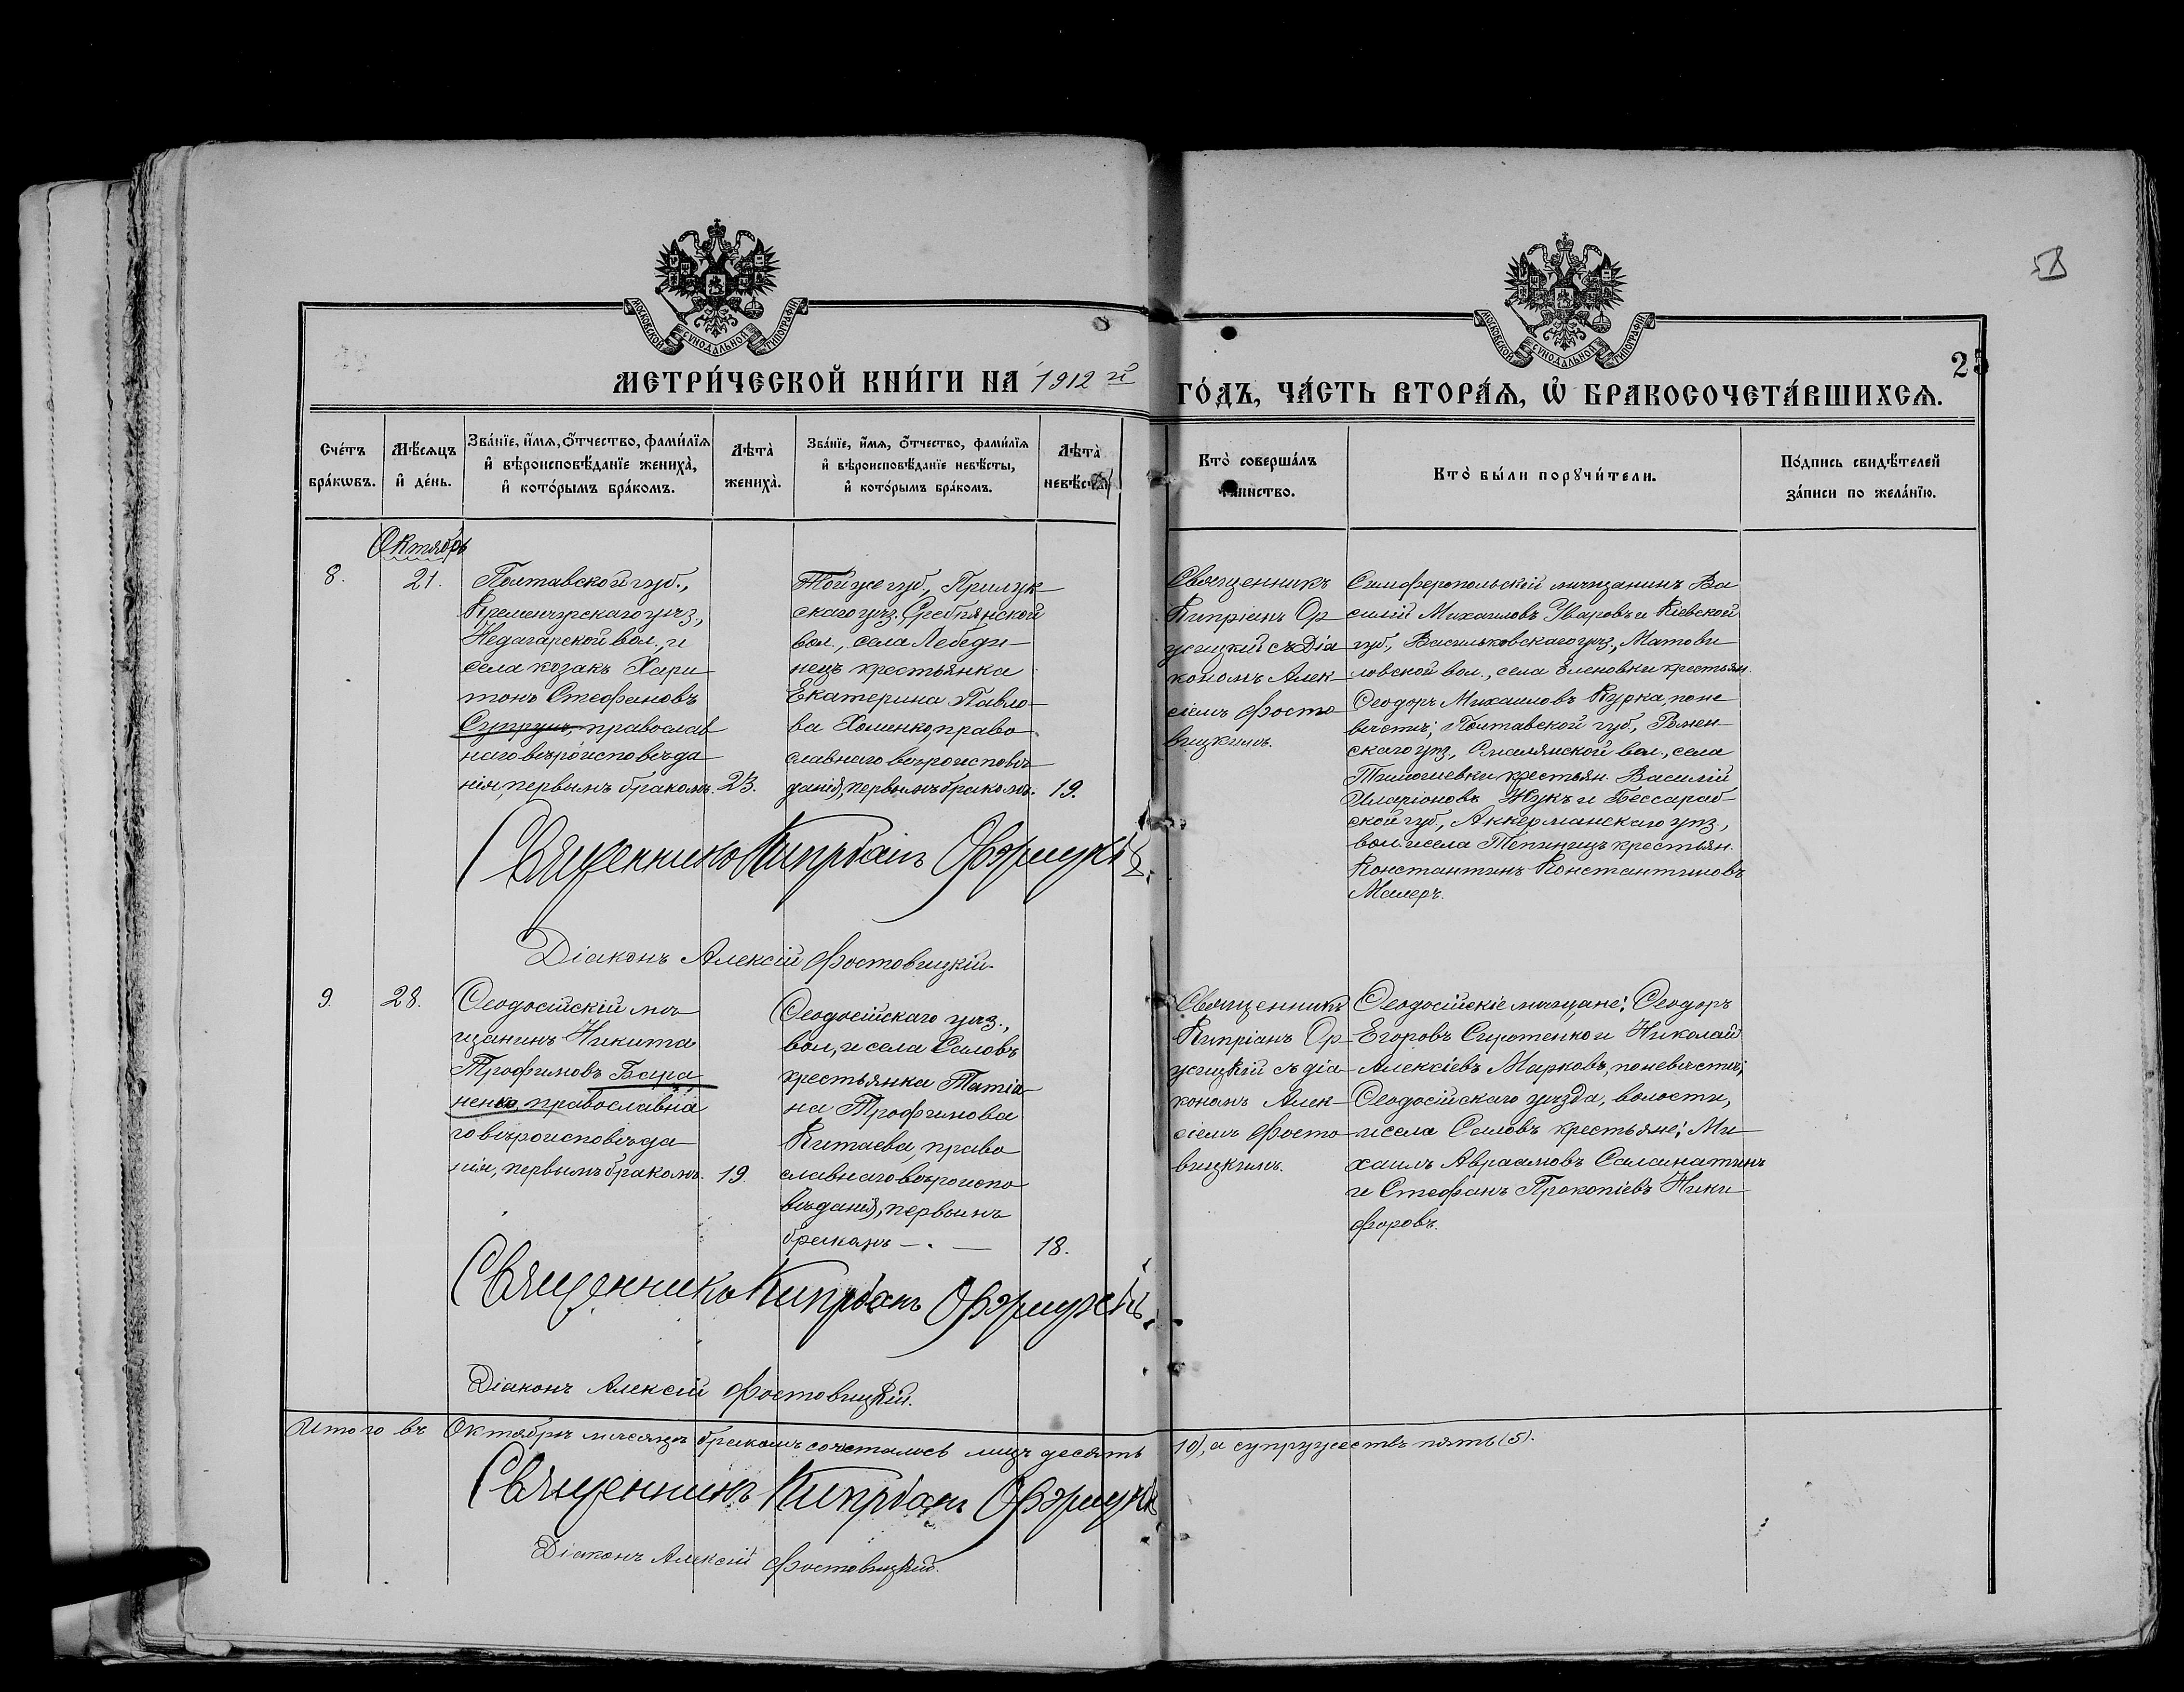 58
МОСКОВСКОЙ СѴНОДАЛЬНОЙ ТИПОГРАФІИ
МОСКОВСКОЙ СѴНОДАЛЬНОЙ ТИПОГРАФІИ
25
МЕТРИ́ЧЕСКОЙ КНИ́ГИ НА 1912 й
ГО́ДЪ, ЧА́СТЬ ВТОРА́Ѧ, Ѡ҆ БРАКОСОЧЕТА́ВШИХСѦ.
Сче́тъ
бра́кѡвъ.
Мѣ́сѧцъ
и҆ де́нь.
Зва́нїе, и҆́мѧ, ѻ҆́тчество, фами́лїѧ
и҆ вѣроисповѣ́данїе жениха̀,
и҆ кото́рымъ бра́комъ.
Лѣта̀
жениха̀.
Зва́нїе, и҆́мѧ, ѻ҆́тчество, фами́лїѧ
и҆ вѣроисповѣ́данїе невѣ́сты,
и҆ кото́рымъ бра́комъ.
Лѣта̀
невѣ́сты.
Кто̀ соверша́лъ
таинство.
Кто̀ бы́ли порꙋчи́тели.
По́дпись свидѣ́телей
за́писи по жела́нїю.
Октябрь
8.
21.
Полтавской губ.,
Кременчугскаго уѣз.,
Недагарской вол., и
села козакъ Хари
тонъ Стефановъ
Супрунъ, православ
наго вѣроисповѣда
нія, первымъ бракомъ.
23.
Той же губ., Прилук
скаго уѣз. Сребрянской
вол., села Лебеди
нецъ крестьянка
Екатерина Павло
ва Хоменко, право
славнаго вѣроисповѣ
данія, первымъ бракомъ.
19.
Священникъ
Кипріанъ Ор
жицкій съ Діа
кономъ Алек
сіемъ Фосто
вицкимъ.
Симферопольскій мѣщанинъ Ва
силій Михаиловъ Уваровъ и Кіевской
губ., Васильковскаго уѣз., Матови
ловской вол., села Еленовки крестьян.
Ѳеодоръ Михаиловъ Курка, по не
вѣстѣ; Полтавской губ., Ромен
скаго уѣз., Смѣлянской вол., села
Тимошевки крестьян. Василій
Иларіоновъ Жукъ и Бессараб
ской губ., Аккерманскаго уѣз.,
вол. и села крестьян.
Константинъ Константиновъ
Малеръ.
Священникъ Кипріанъ Оржицкій
Діаконъ Алексій Фостовицкій.
9.
28.
Ѳеодосійскій мѣ
щанинъ Никита
Трофимовъ Бара
ненко, православна
го вѣроисповѣда
нія, первымъ бракомъ.
19.
Ѳеодосійскаго уѣз.,
вол., и села Саловъ
крестьянка Татіа
на Трофимова
Китаева, право
славнаго вѣроиспо
вѣданія, первымъ
бракомъ —.—
18.
Священникъ
Кипріанъ Ор
жицкій съ діа
кономъ Алек
сіемъ Фосто
вицкимъ.
Ѳеодосійскіе мѣщане: Ѳеодоръ
Егоровъ Сиротенко и Николай
Алексіевъ Марковъ, по невѣстѣ;
Ѳеодосійскаго уѣзда, волости,
и села Саловъ крестьяне: Ми
хаилъ Авраамовъ Саламатинъ
и Стефанъ Прокопіевъ Ники
форовъ.
Священникъ Кипріанъ Оржицкій.
Діаконъ Алексій Фостовицкій.
Итого въ Октябрѣ мѣсяцѣ бракомъ сочеталось лицъ десять 10), а супружествъ пять (5).
Священникъ Кипріанъ Оржицкій
Діаконъ Алексій Фостовицкій.